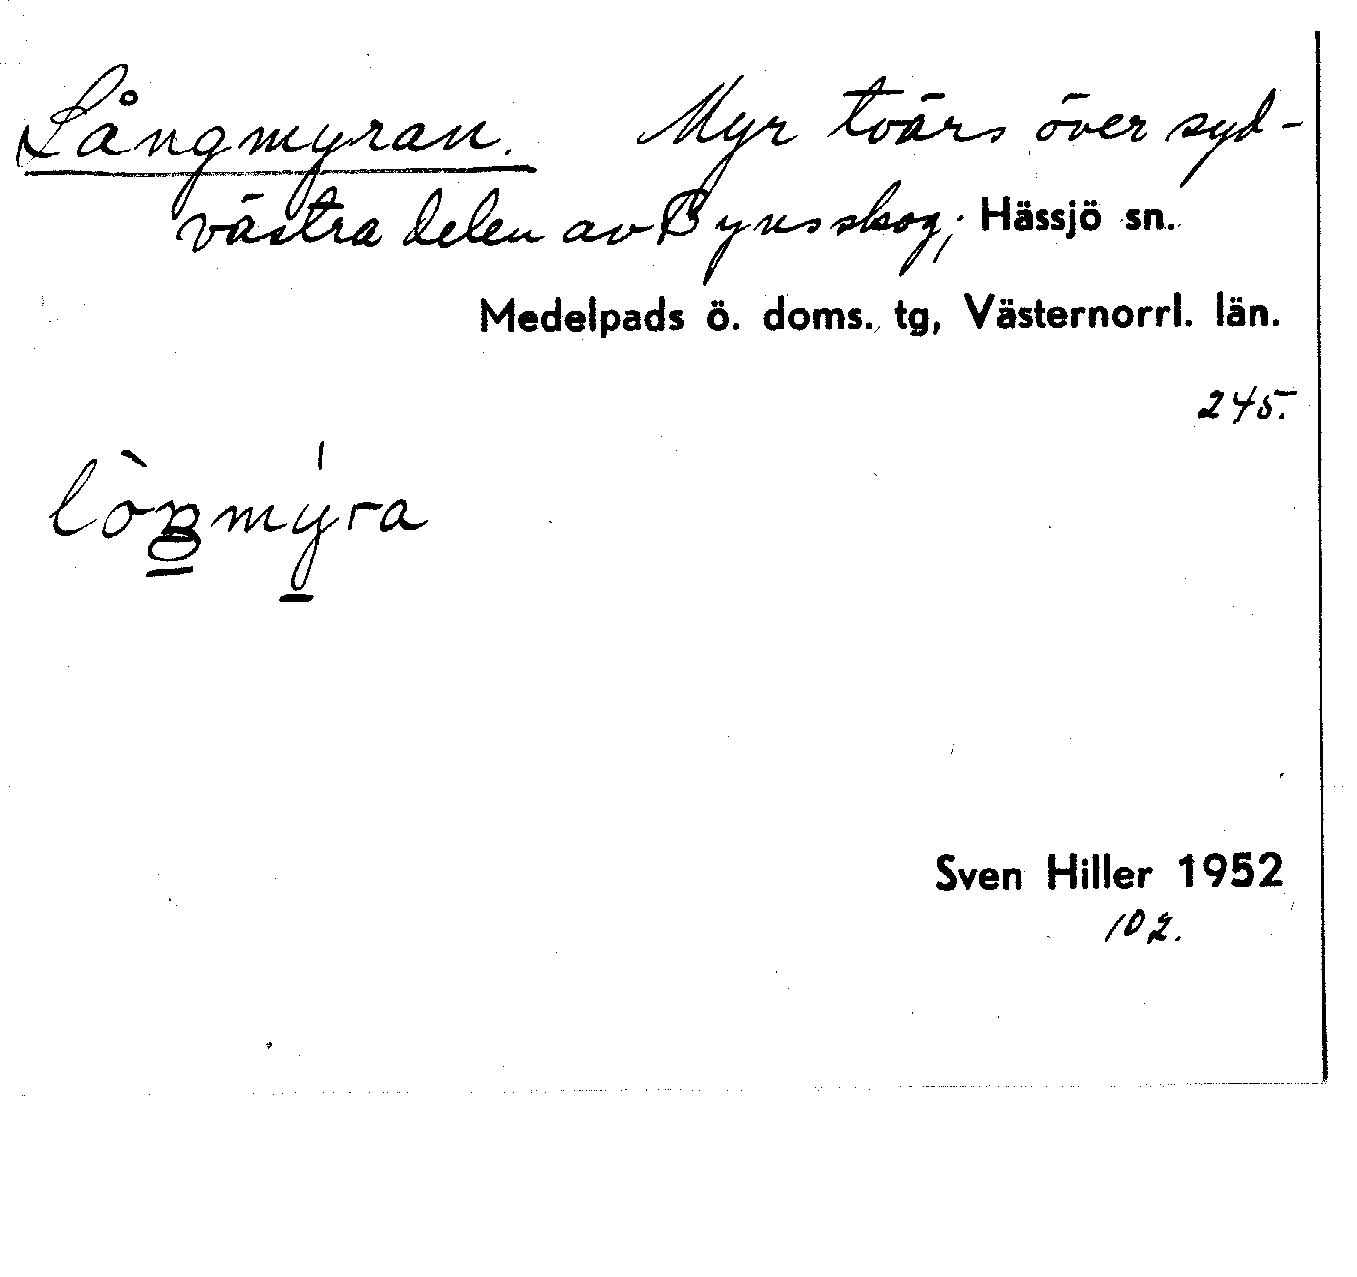 Långmyran. Myr tvärs över syd-
västra delen av Byns skog; Hässjö sn.
Medelpads ö. doms. tg, Västernorrl. län.
245.
Sven Hiller 1952
102.